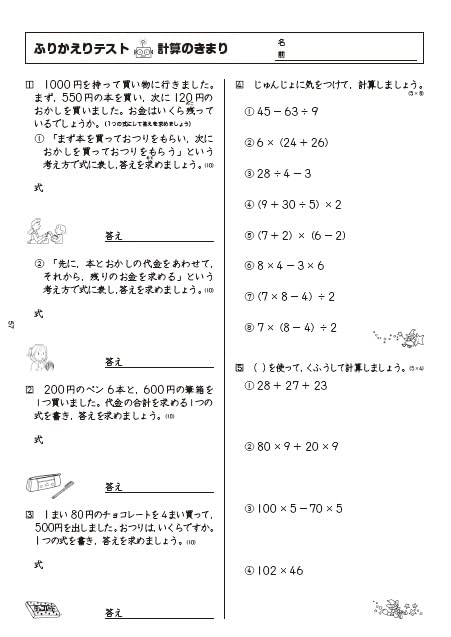 ふりかえりテスト 計算のきまり
名前
1 1000円を持って買い物に行きました。
まず，550円の本を買い，次に120円の
おかしを買いました。お金はいくら残って
いるでしょうか。(1つの式にして答えを求めましょう)
① 「まず本を買っておつりをもらい，次に
おかしを買っておつりをもらう」という
考え方で式に表し，答えを求めましょう。(10)
式
答え
② 「先に，本とおかしの代金をあわせて，
それから，残りのお金を求める」という
考え方で式に表し，答えを求めましょう。(10)
式
答え
2 200円のペン6本と，600円の筆箱を
1つ買いました。代金の合計を求める1つの
式を書き，答えを求めましょう。(10)
式
答え
3 1まい80円のチョコレートを4まい買って，
500円を出しました。おつりは，いくらですか。
1つの式を書き，答えを求めましょう。(10)
式
チョコレート
答え
57
4 じゅんじょに気をつけて，計算しましょう。
(5×8)
① 45－63÷9
② 6×（24＋26）
③ 28÷4－3
④（9＋30÷5）×2
⑤（7＋2）×（6－2）
⑥ 8×4－3×6
⑦（7×8－4）÷2
⑧ 7×（8－4）÷2
5 （ ）を使って，くふうして計算しましょう。(5×4)
① 28＋27＋23
② 80×9＋20×9
③ 100×5－70×5
④ 102×46